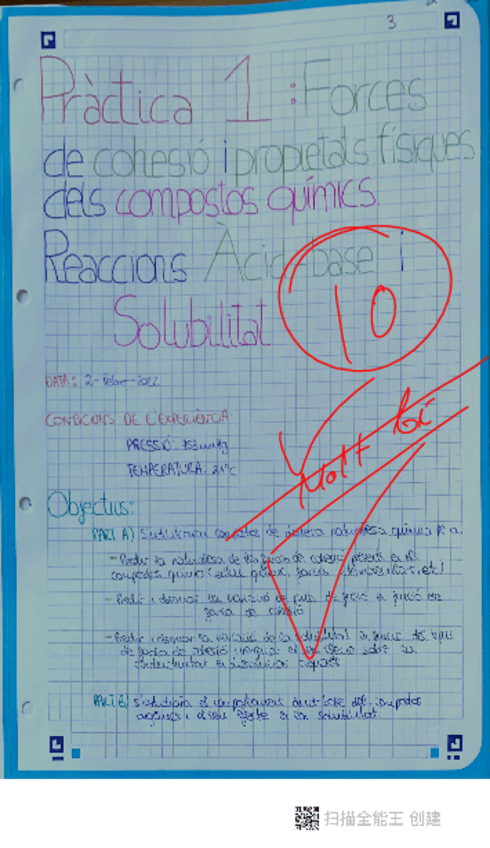 3
Pràctica 1: Forces
de cohesió i propietats físiques
dels compostos químics.
Reaccions Àcid-base i
Solubilitat
10
DATA: 2-Febrer-2022
CONDICIONS DE L'EXPERIÈNCIA
PRESSIÓ:
TEMPERATURA: 21ºC
Molt bé
Objectius:
PART A) S'estudiaran compostos de diversa naturalesa química per a:
- Predir la naturalesa de les forces de cohesió presents en
compostos químics
- Predir i observar la variació de punt de fusió en funció de
força de cohesió
- Predir i observar la variació de la solubilitat en funció del tipus
de força de cohesió
PART B) S'estudiarà el comportament àcid-base dels compostos
orgànics i el seu efecte en la solubilitat
扫描全能王 创建